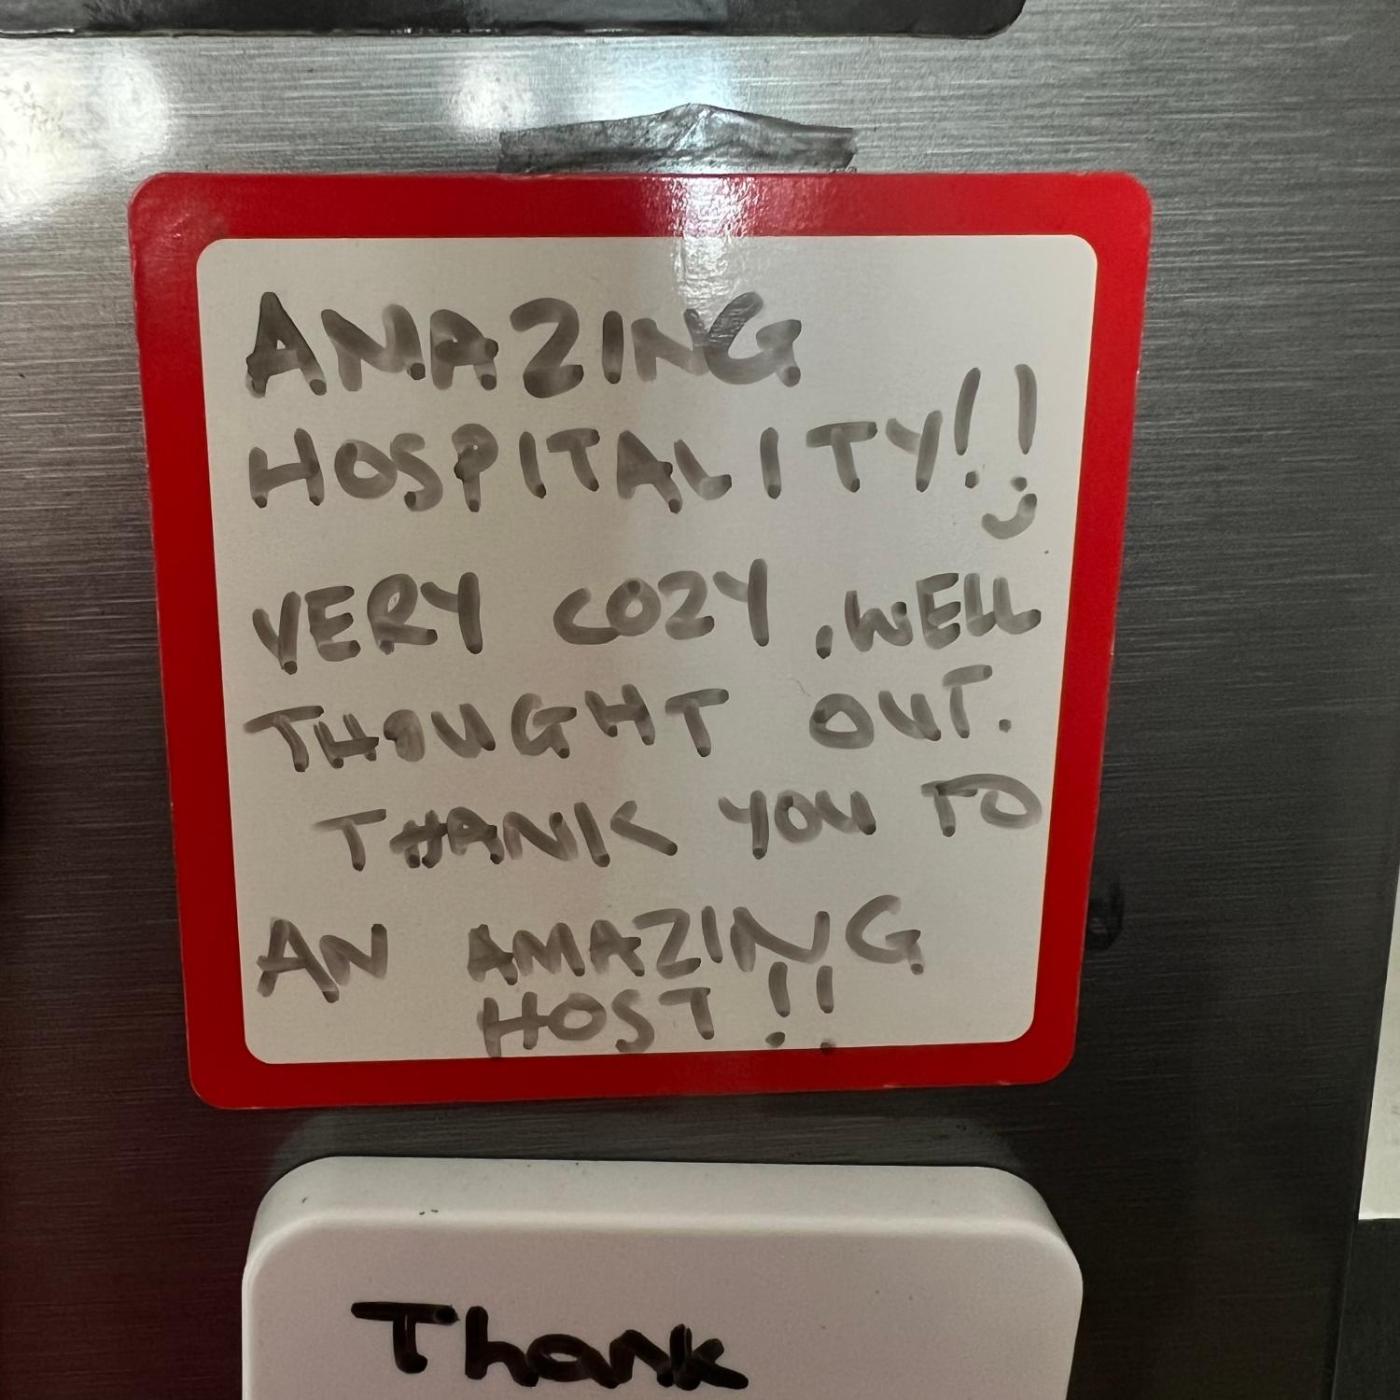 AMAZING
HOSPITALITY!!
VERY COZY, WELL
THOUGHT OUT.
THANK YOU TO
AN AMAZING
HOST!!
Thank